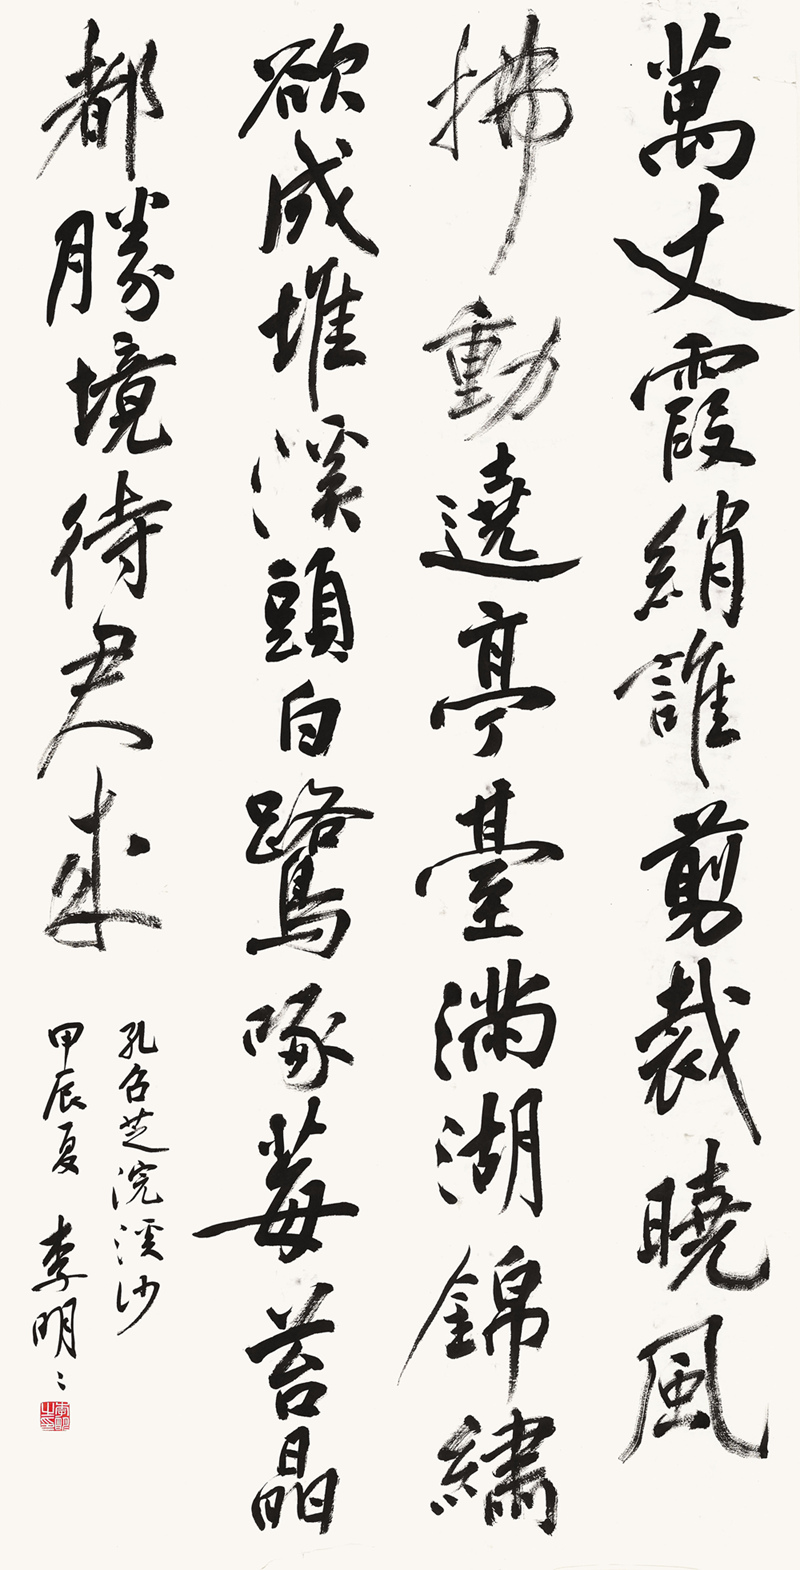 萬丈霞綃誰剪裁曉風
拂動遶亭臺滿湖錦繡
欲成堆溪頭白鷺啄莓苔晶
都勝境待君來
孔召芝浣溪沙
甲辰夏 李明〻